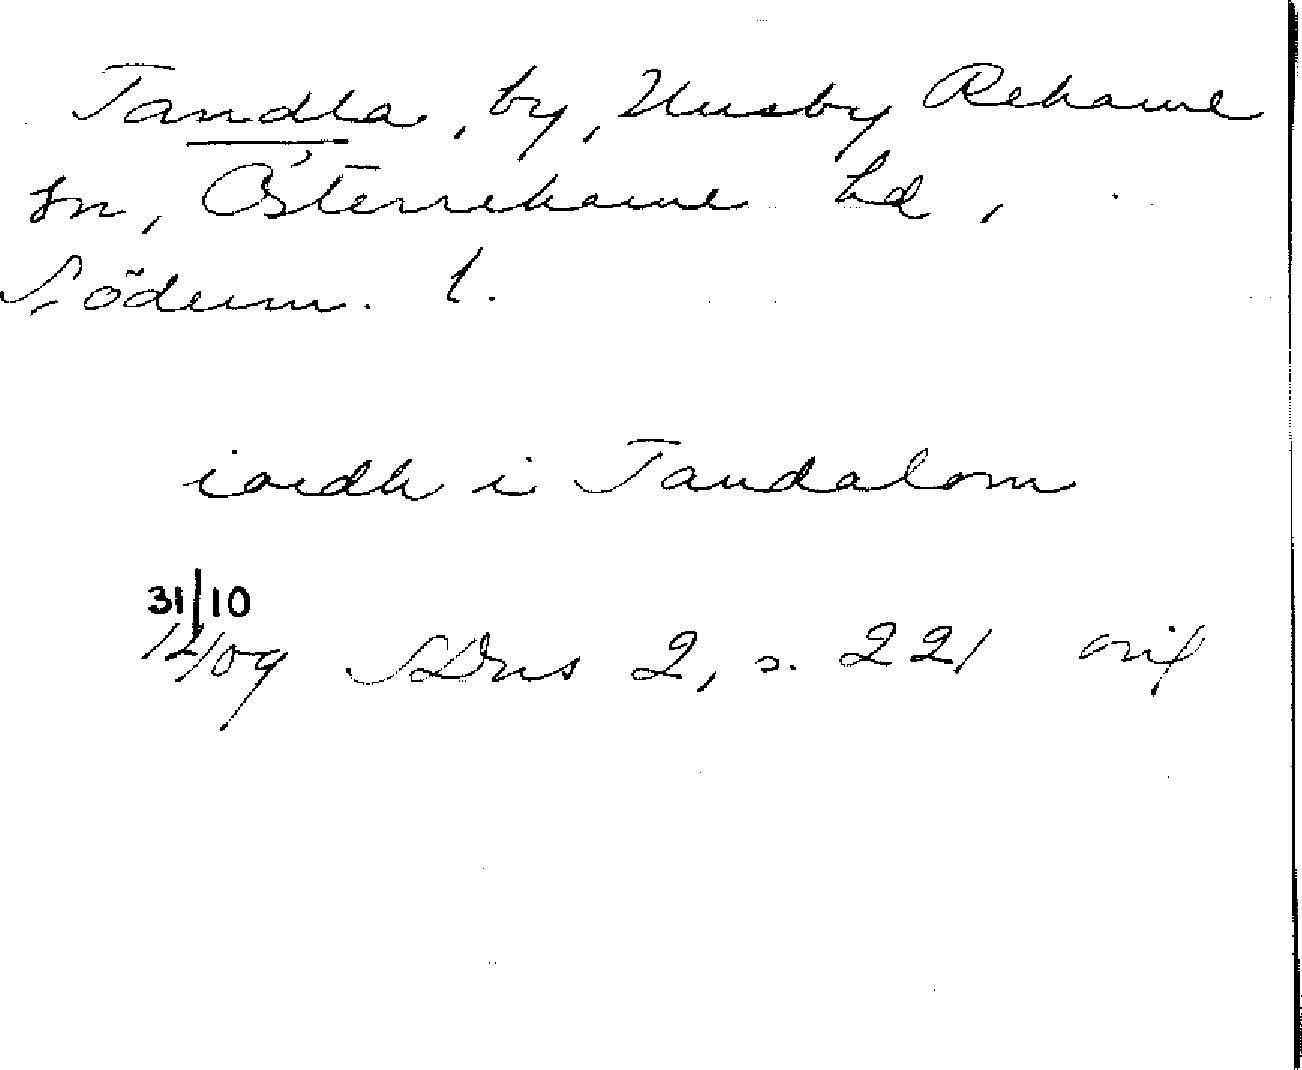 Tandla, by, Husby Rekarne
sn, Österrekarne hd,
Söderm. l.
iordh i Tandalom
31/10
1409 SDns 2, s. 221 orig